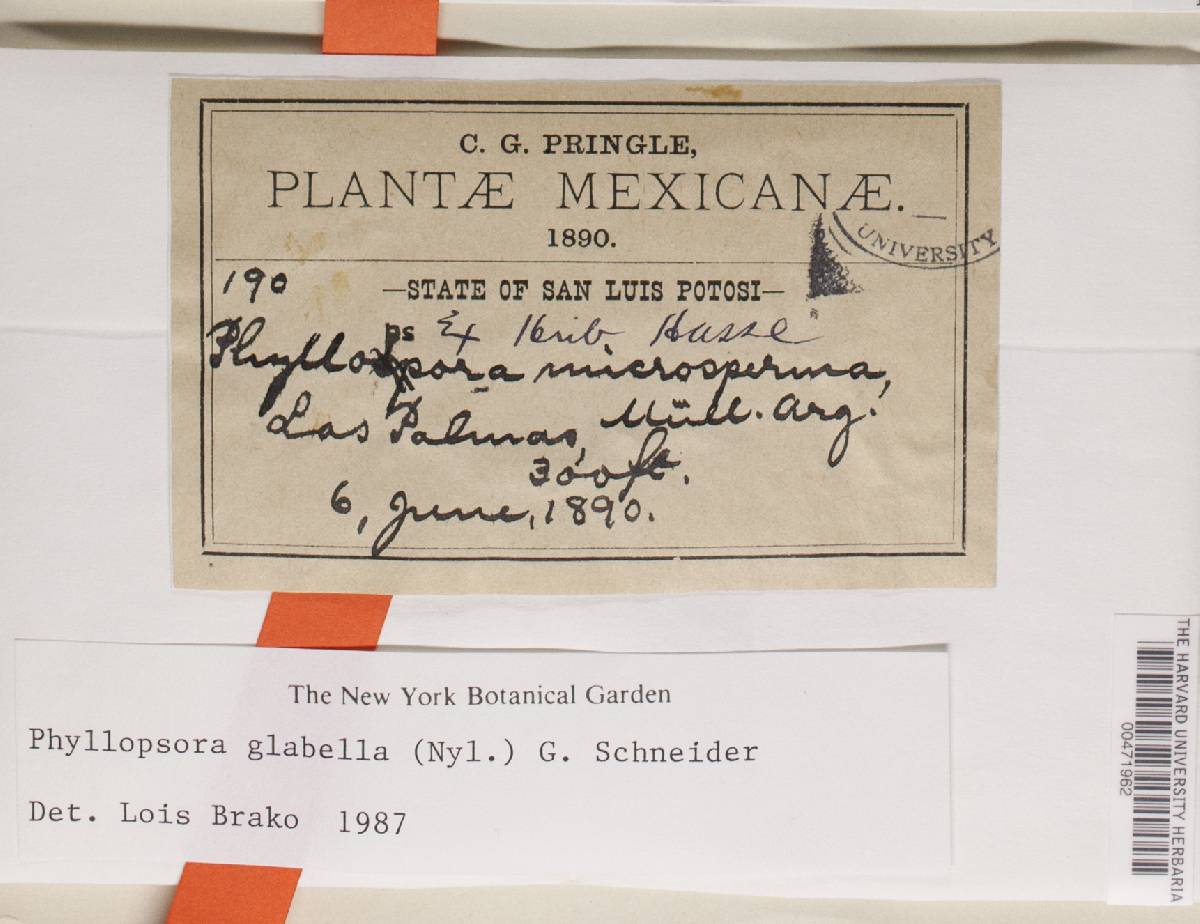 C. G. PRINGLE,
PLANTÆ MEXICANÆ.
1890.
UNIVERSITY
190
—STATE OF SAN LUIS POTOSI—
ps Ex Herb. Hasse
Phyllospora microsperma,
Las Palmas, Müll. Arg.
300 ft.
6, June, 1890.
The New York Botanical Garden
Phyllopsora glabella (Nyl.) G. Schneider
Det. Lois Brako 1987
THE HARVARD UNIVERSITY HERBARIA
00471962